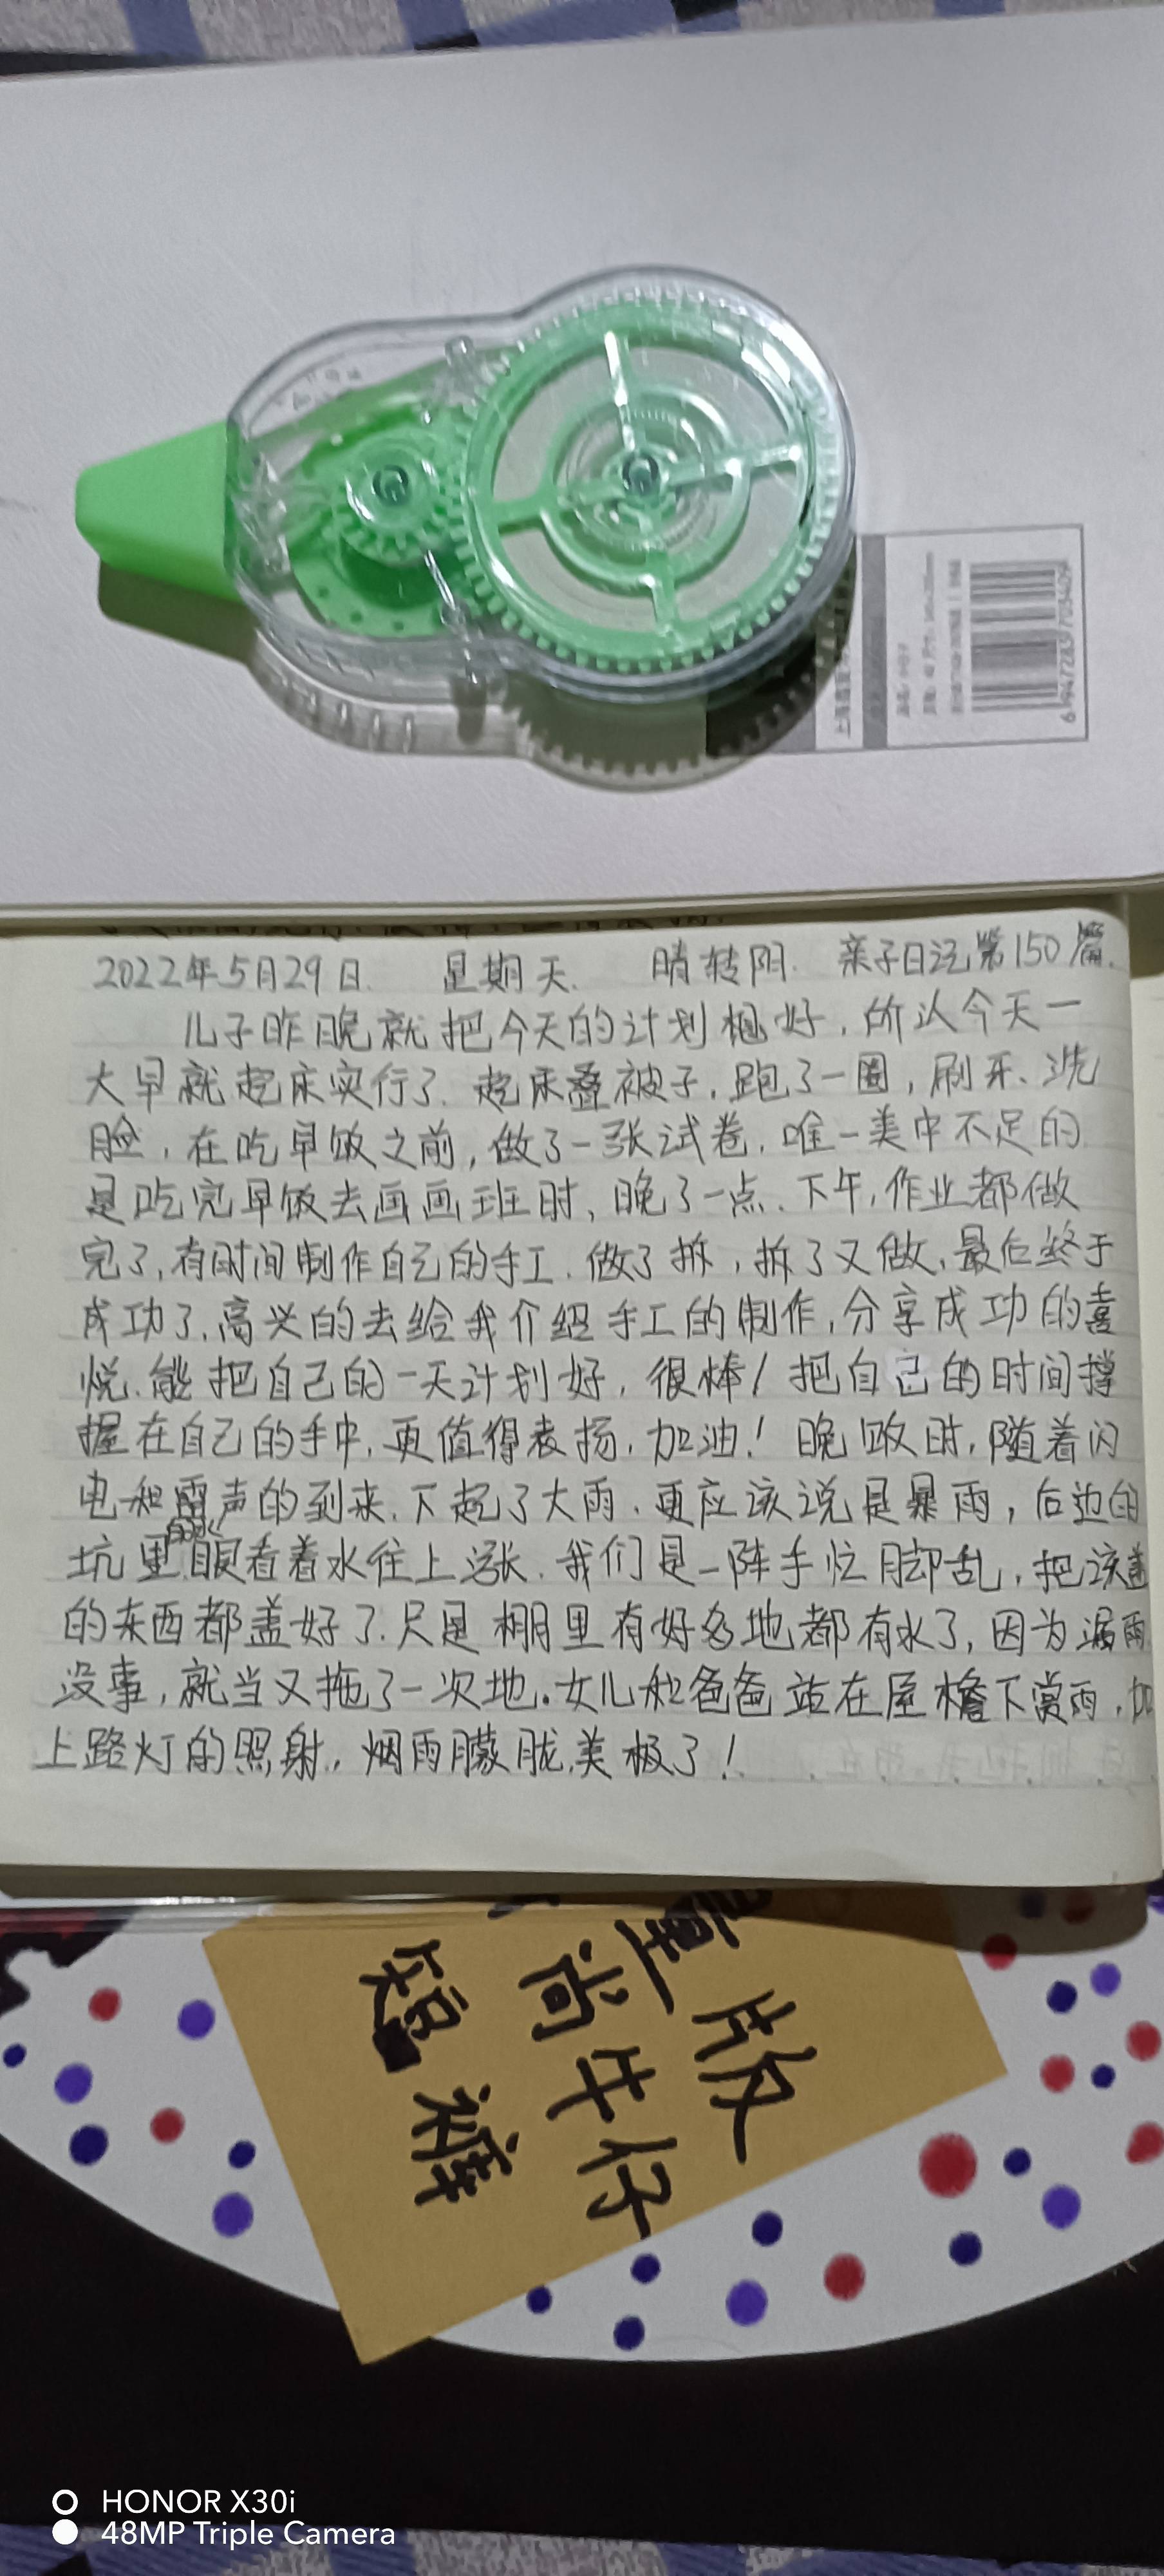 6947283703409
2022年5月29日. 星期天. 晴转阴. 亲子日记第150篇.
儿子昨晚就把今天的计划想好,所以今天一
大早就起床实行了.起床叠被子,跑了一圈,刷牙、洗
脸,在吃早饭之前,做了一张试卷,唯一美中不足的
是吃完早饭去画画班时,晚了一点.下午,作业都做
完了,有时间制作自己的手工.做了拆,拆了又做,最后终于
成功了,高兴的去给我介绍手工的制作,分享成功的喜
悦.能把自己的一天计划好,很棒!把自己的时间撑
握在自己的手中,更值得表扬,加油!晚饭时,随着闪
电和雷声的到来,下起了大雨,更应该说是暴雨,后边的
坑里的水眼看着水往上涨.我们是一阵手忙脚乱,把该盖
的东西都盖好了.只是棚里有好多地都有水了,因为漏雨.
没事,就当又拖了一次地.女儿和爸爸站在屋檐下赏雨,加
上路灯的照射,烟雨朦胧,美极了!
童尚牛仔
短裤
HONOR X30i
48MP Triple Camera